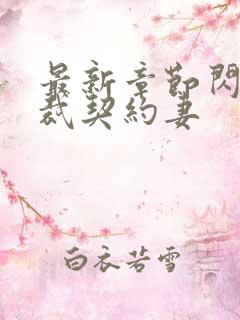 最新章節閃
裁契約妻
白衣若雪